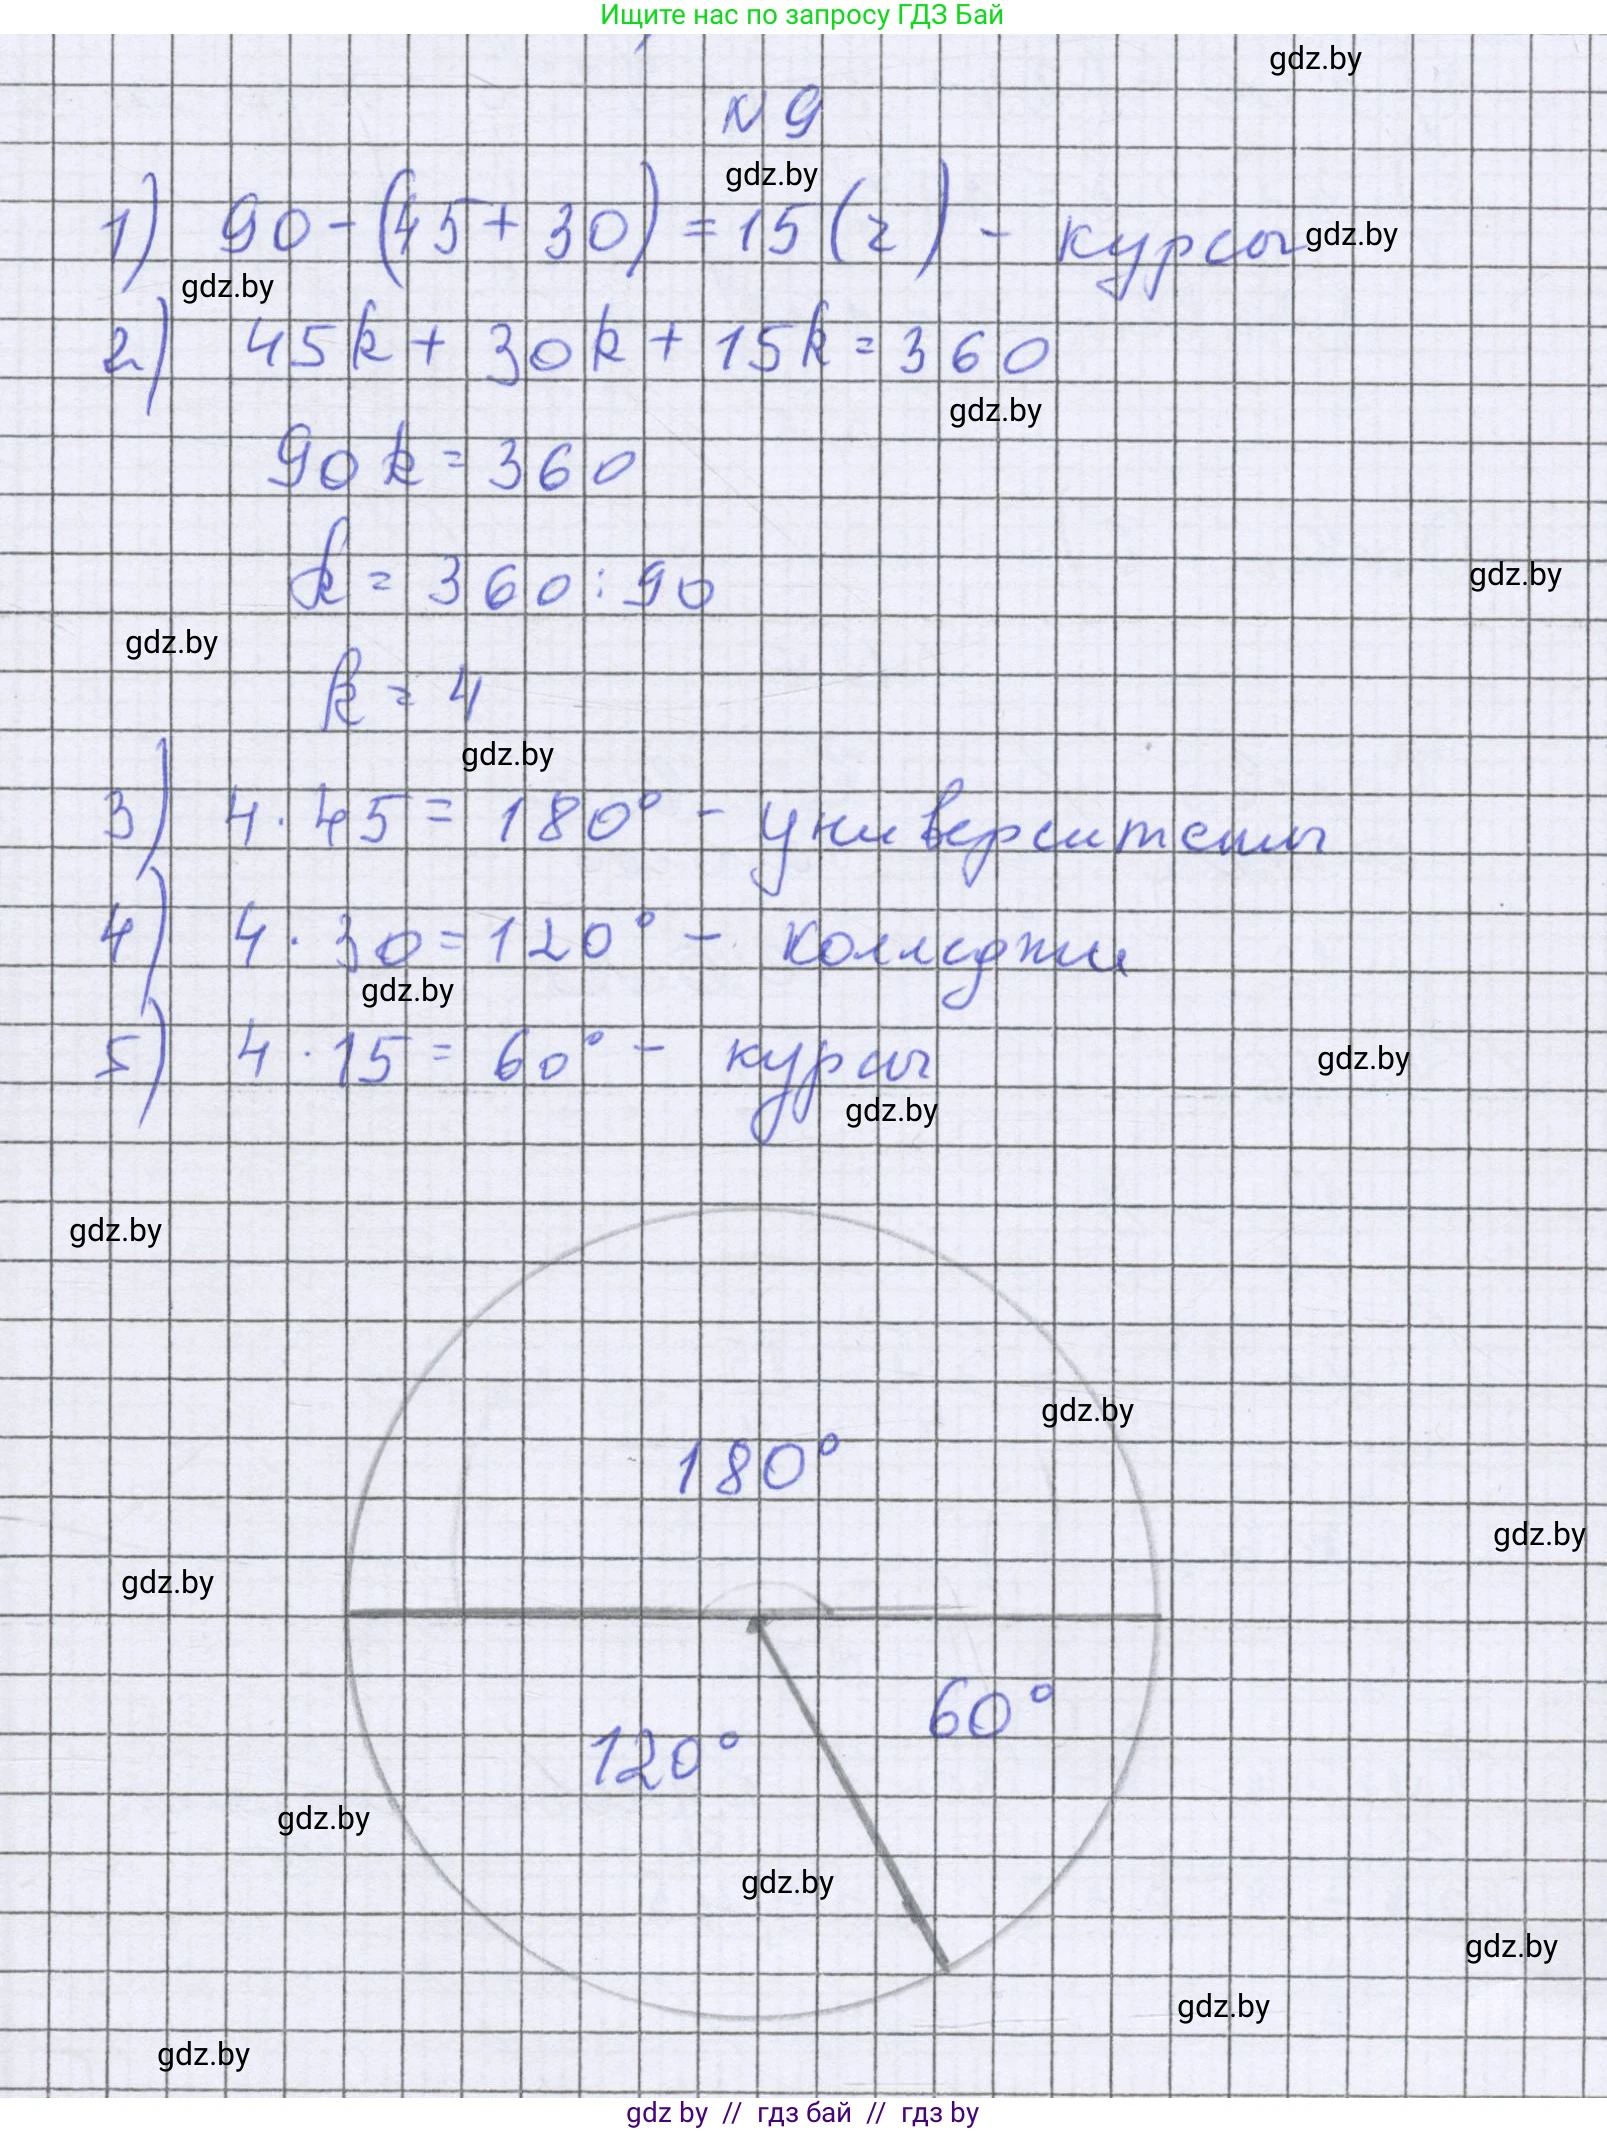 Ищите нас по запросу ГДЗ Бай
gdz.by
N 9
gdz.by
1) 90 - (45 + 30) = 15 (г) - курсы
gdz.by
gdz.by
2) 45k + 30k + 15k = 360
gdz.by
90k = 360
k = 360 : 90
gdz.by
gdz.by
k = 4
gdz.by
3) 4 · 45 = 180° - университеты
4) 4 · 30 = 120° - колледжи
gdz.by
5) 4 · 15 = 60° - курсы
gdz.by
gdz.by
gdz.by
gdz.by
180°
gdz.by
gdz.by
60°
120°
gdz.by
gdz.by
gdz.by
gdz.by
gdz.by
gdz by // гдз бай // гдз by